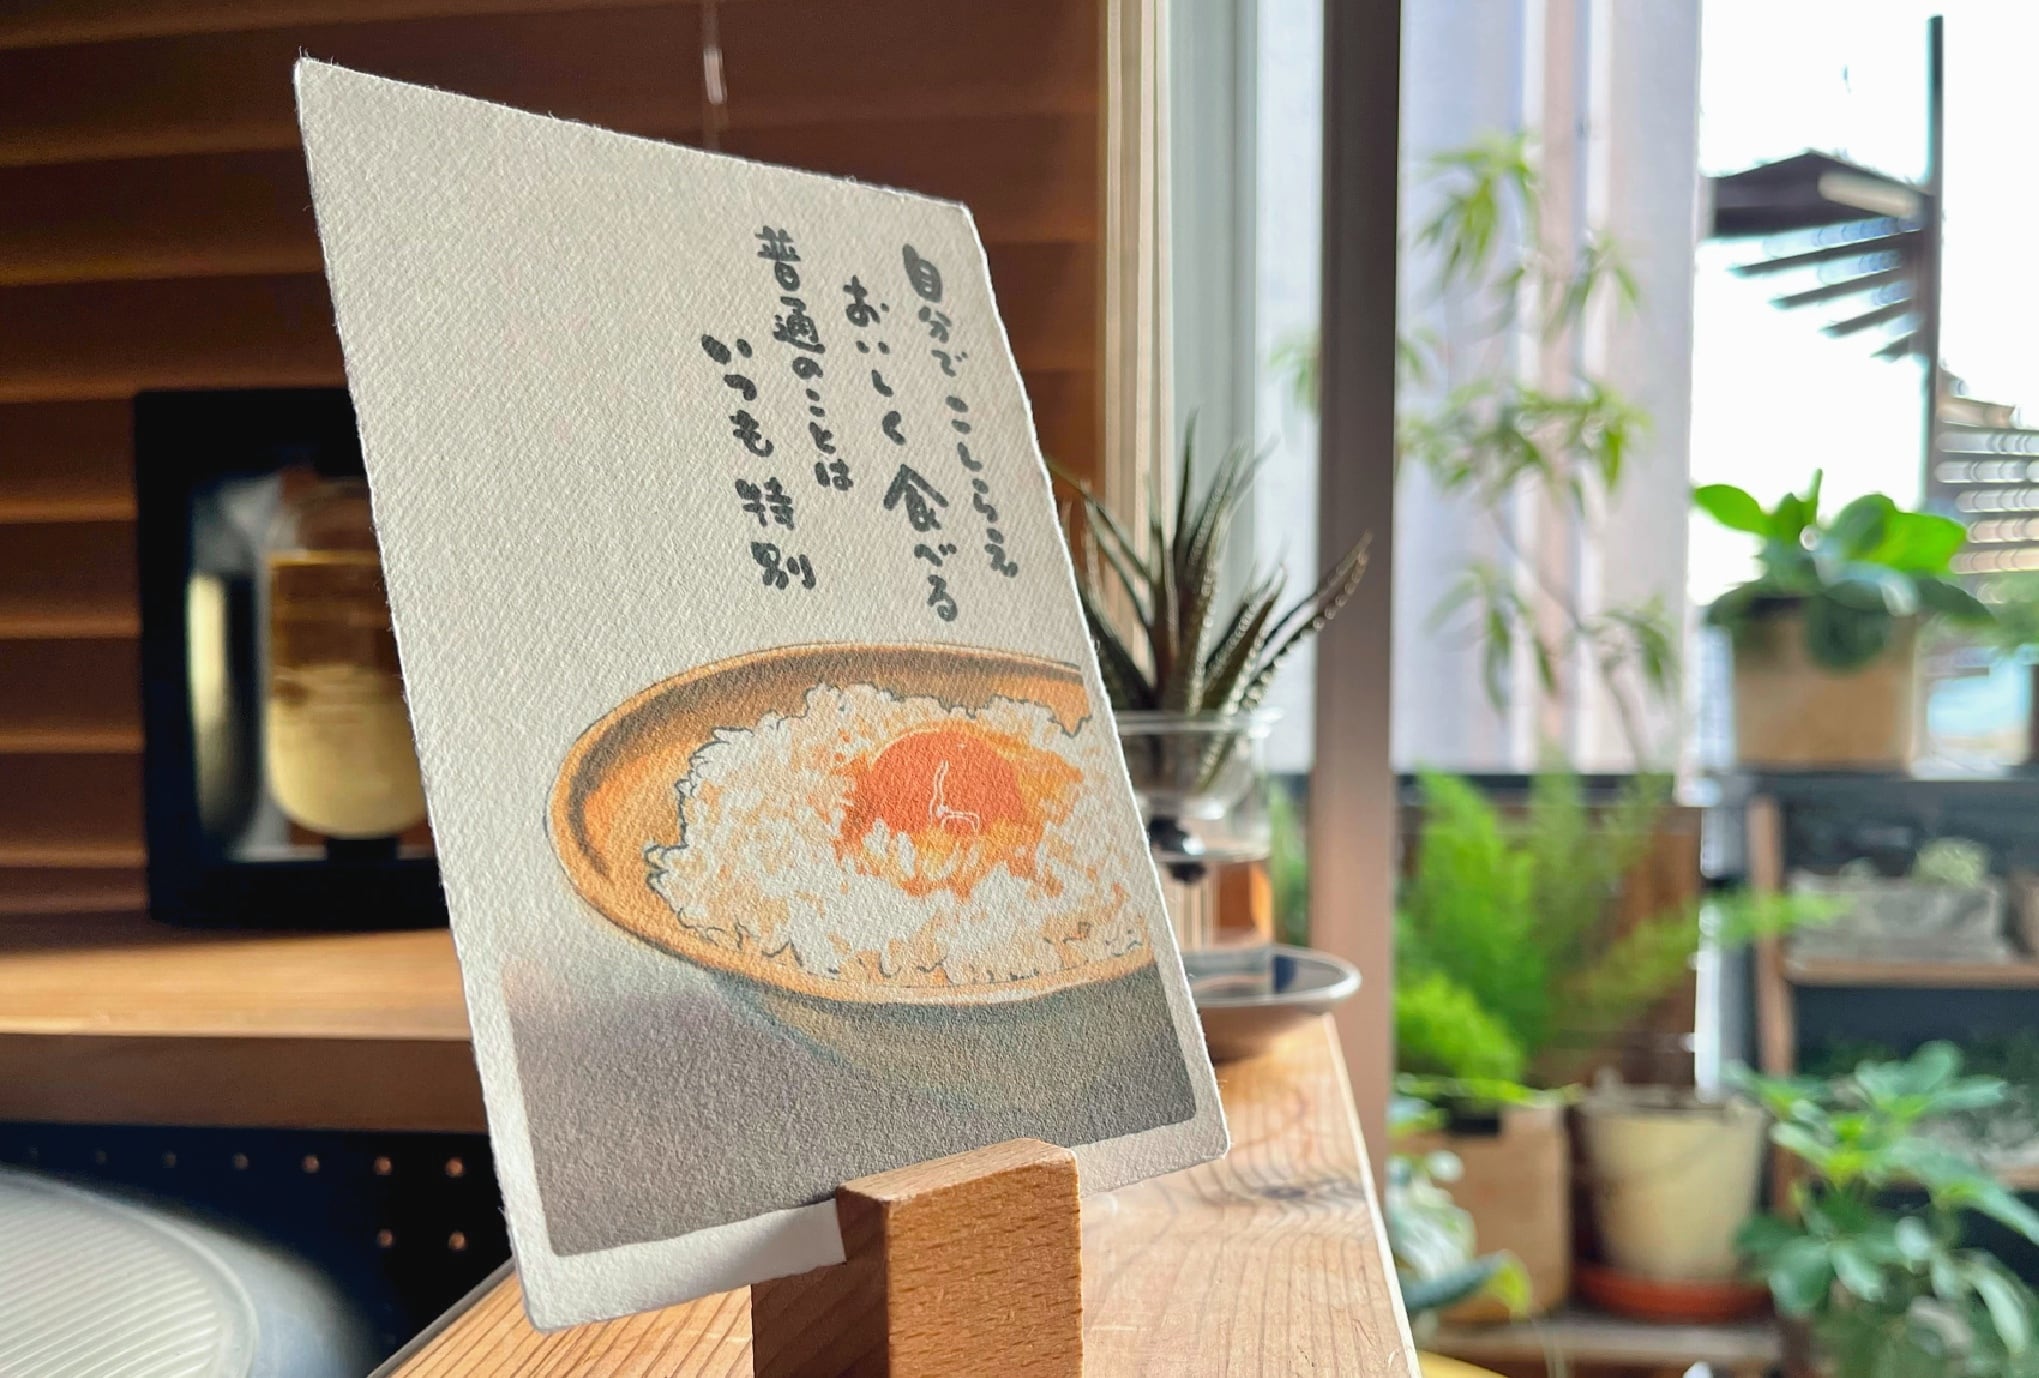 自分でこしらえ
おいしく食べる
普通のことは
いつも特別